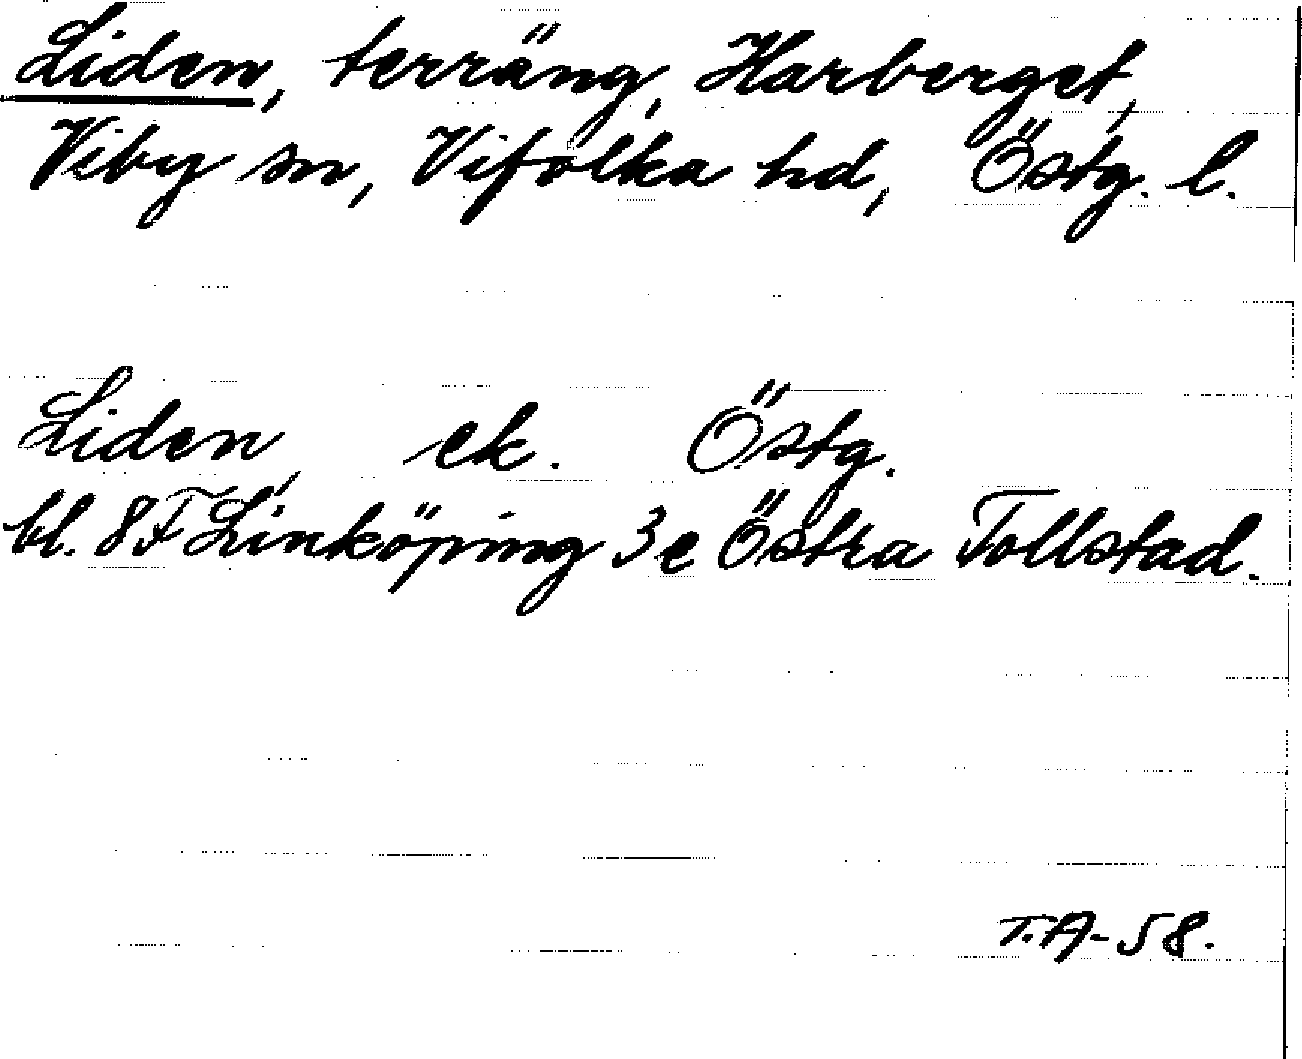 Liden, terräng, Harberget,
Viby sn, Vifolka hd, Östg. l.
Liden, ek. Östg.
bl. 8F Linköping 3e Östra Tollstad.
T.A-58.